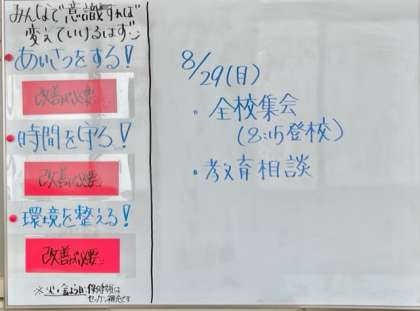 みんなで意識すれば
変えていけるはず
あいさつをする!
改善が必要
時間を守る!
改善が必要
環境を整える!
改善が必要
8/29(月)
・全校集会
(8:15登校)
・教育相談